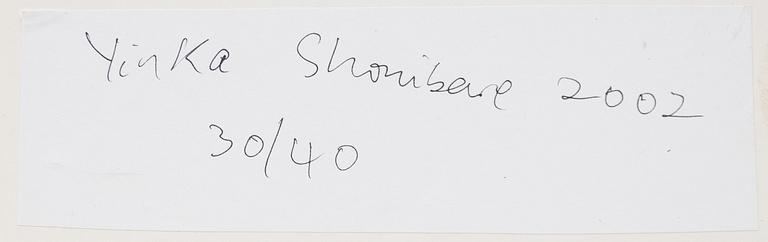 Yinka Shonibare 2002
30/40